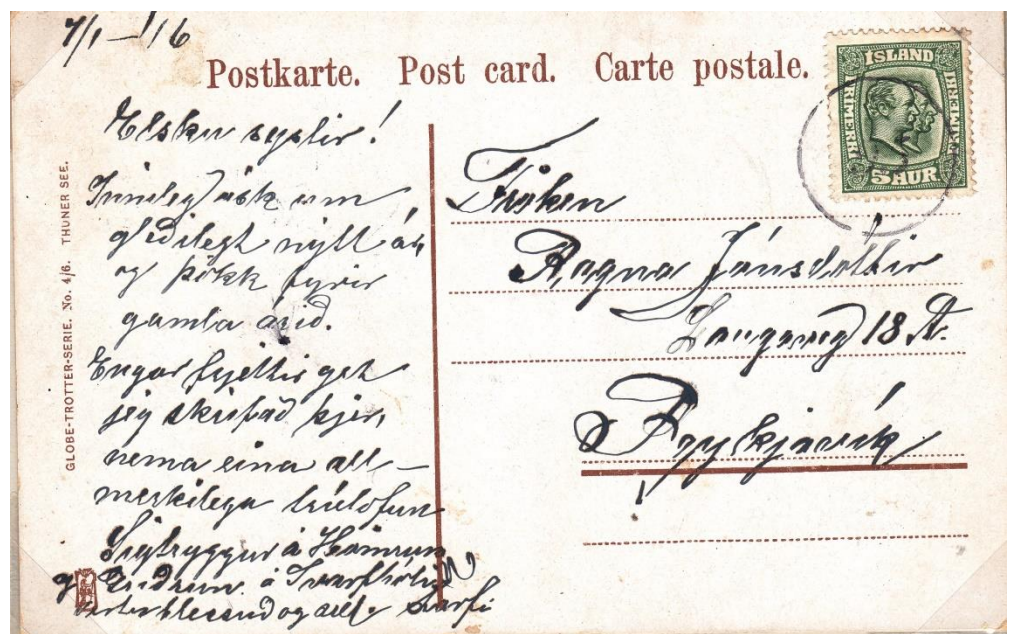 7/1 – 16
Postkarte. Post card. Carte postale.
ÍSLAND
FRIMERKI
5 AUR
GLOBE-TROTTER-SERIE. No. 4/6. THUNER SEE.
Elsku systir!
Inndæl ósk um
gleðilegt nýtt ár
og þökk fyrir
gamla árið.
Engar frjettir get
jeg skrifað þjer,
nema eina all-
merkilega trúlofun
Sigtryggur á Hömrum
og Guðrún á
blessuð og æfi
Frøken
Ragna Jónsdóttir
Laugaveg 18 A.
Reykjavík